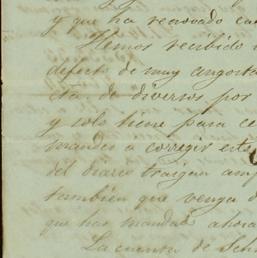 y que ha renovado
Hemos recibido
defecto de muy angosta
cta de diversos por
y solo tiene para
mande a corregir este
del diario traigan
tambien que venga
que has mandado ahora
La cuenta de